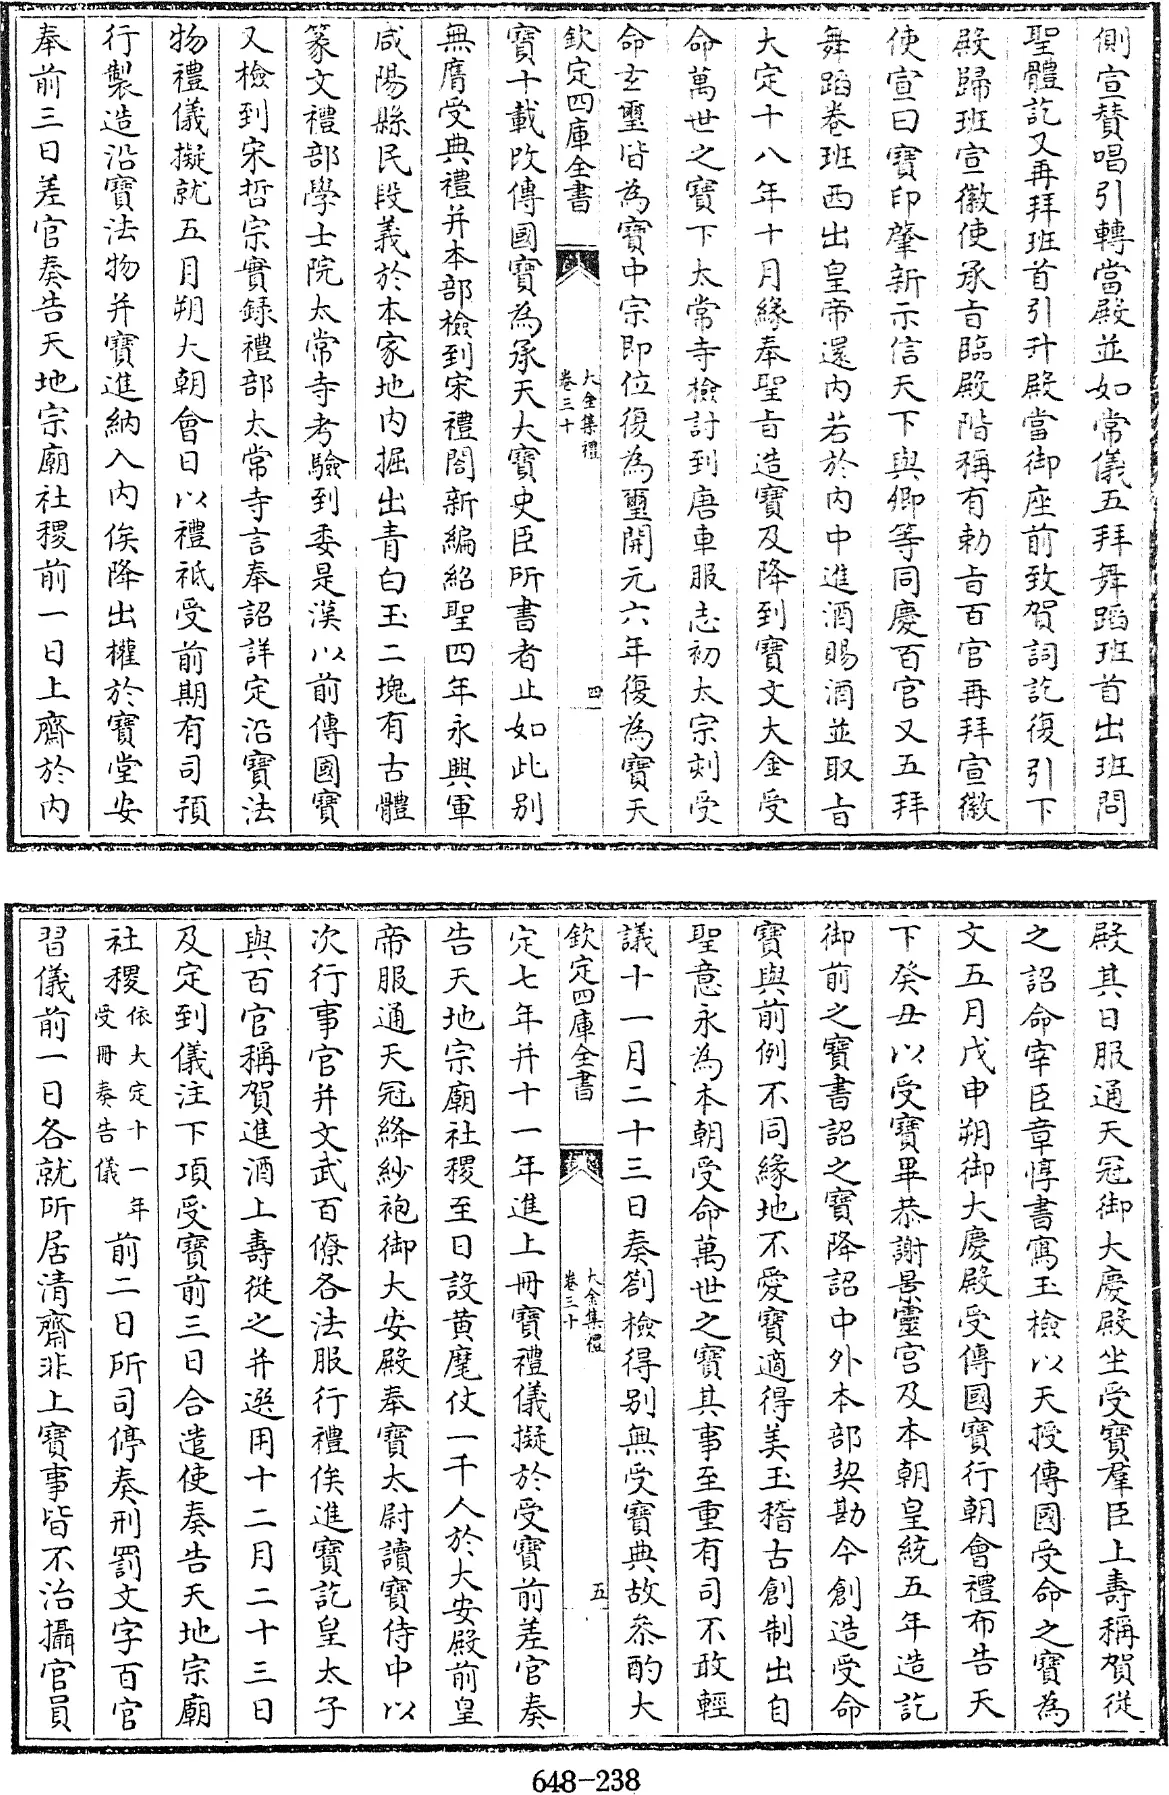 側宣賛唱引轉當殿並如常儀五拜舞蹈班首出班問
聖體訖又再拜班首引升殿當御座前致賀詞訖復引下
殿歸班宣徽使承㫖臨殿階稱有勅㫖百官再拜宣徽
使宣曰寶印肇新示信天下與卿等同慶百官又五拜
舞蹈卷班西出皇帝還内若於内中進酒賜酒並取㫖
大定十八年十月緣奉聖㫖造寶及降到寶文大金受
命萬世之寶下太常寺檢討到唐車服志初太宗刻受
命玄璽皆為寶中宗即位復為璽開元六年復為寶天
欽定四庫全書
大金集禮
卷三十
四
寶十載改傳國寶為承天大寶史臣所書者止如此别
無膺受典禮并本部檢到宋禮閤新編紹聖四年永興軍
咸陽縣民段義於本家地内掘出青白玉二塊有古體
篆文禮部學士院太常寺考驗到委是漢以前傳國寶
又檢到宋哲宗實録禮部太常寺言奉詔詳定沿寶法
物禮儀擬就五月朔大朝會日以禮祗受前期有司預
行製造沿寶法物并寶進納入内俟降出權於寶堂安
奉前三日差官奏告天地宗廟社稷前一日上齋於内
殿其日服通天冠御大慶殿坐受寶羣臣上壽稱賀從
之詔命宰臣章惇書寫玉檢以天授傳國受命之寶為
文五月戊申朔御大慶殿受傳國寶行朝會禮布告天
下癸丑以受寶畢恭謝景靈宫及本朝皇統五年造訖
御前之寶書詔之寶降詔中外本部契勘今創造受命
寶與前例不同緣地不愛寶適得美玉稽古創制出自
聖意永為本朝受命萬世之寶其事至重有司不敢輕
議十一月二十三日奏劄檢得别無受寶典故叅酌大
欽定四庫全書
大金集禮
卷三十
五
定七年并十一年進上冊寶禮儀擬於受寶前差官奏
告天地宗廟社稷至日設黄麾仗一千人於大安殿前皇
帝服通天冠絳紗袍御大安殿奉寶太尉讀寶侍中以
次行事官并文武百僚各法服行禮俟進寶訖皇太子
與百官稱賀進酒上壽從之并選用十二月二十三日
及定到儀注下項受寶前三日合遣使奏告天地宗廟
社稷依大定十一年受冊奏告儀前二日所司停奏刑罰文字百官
習儀前一日各就所居清齋非上寶事皆不治攝官員
648-238